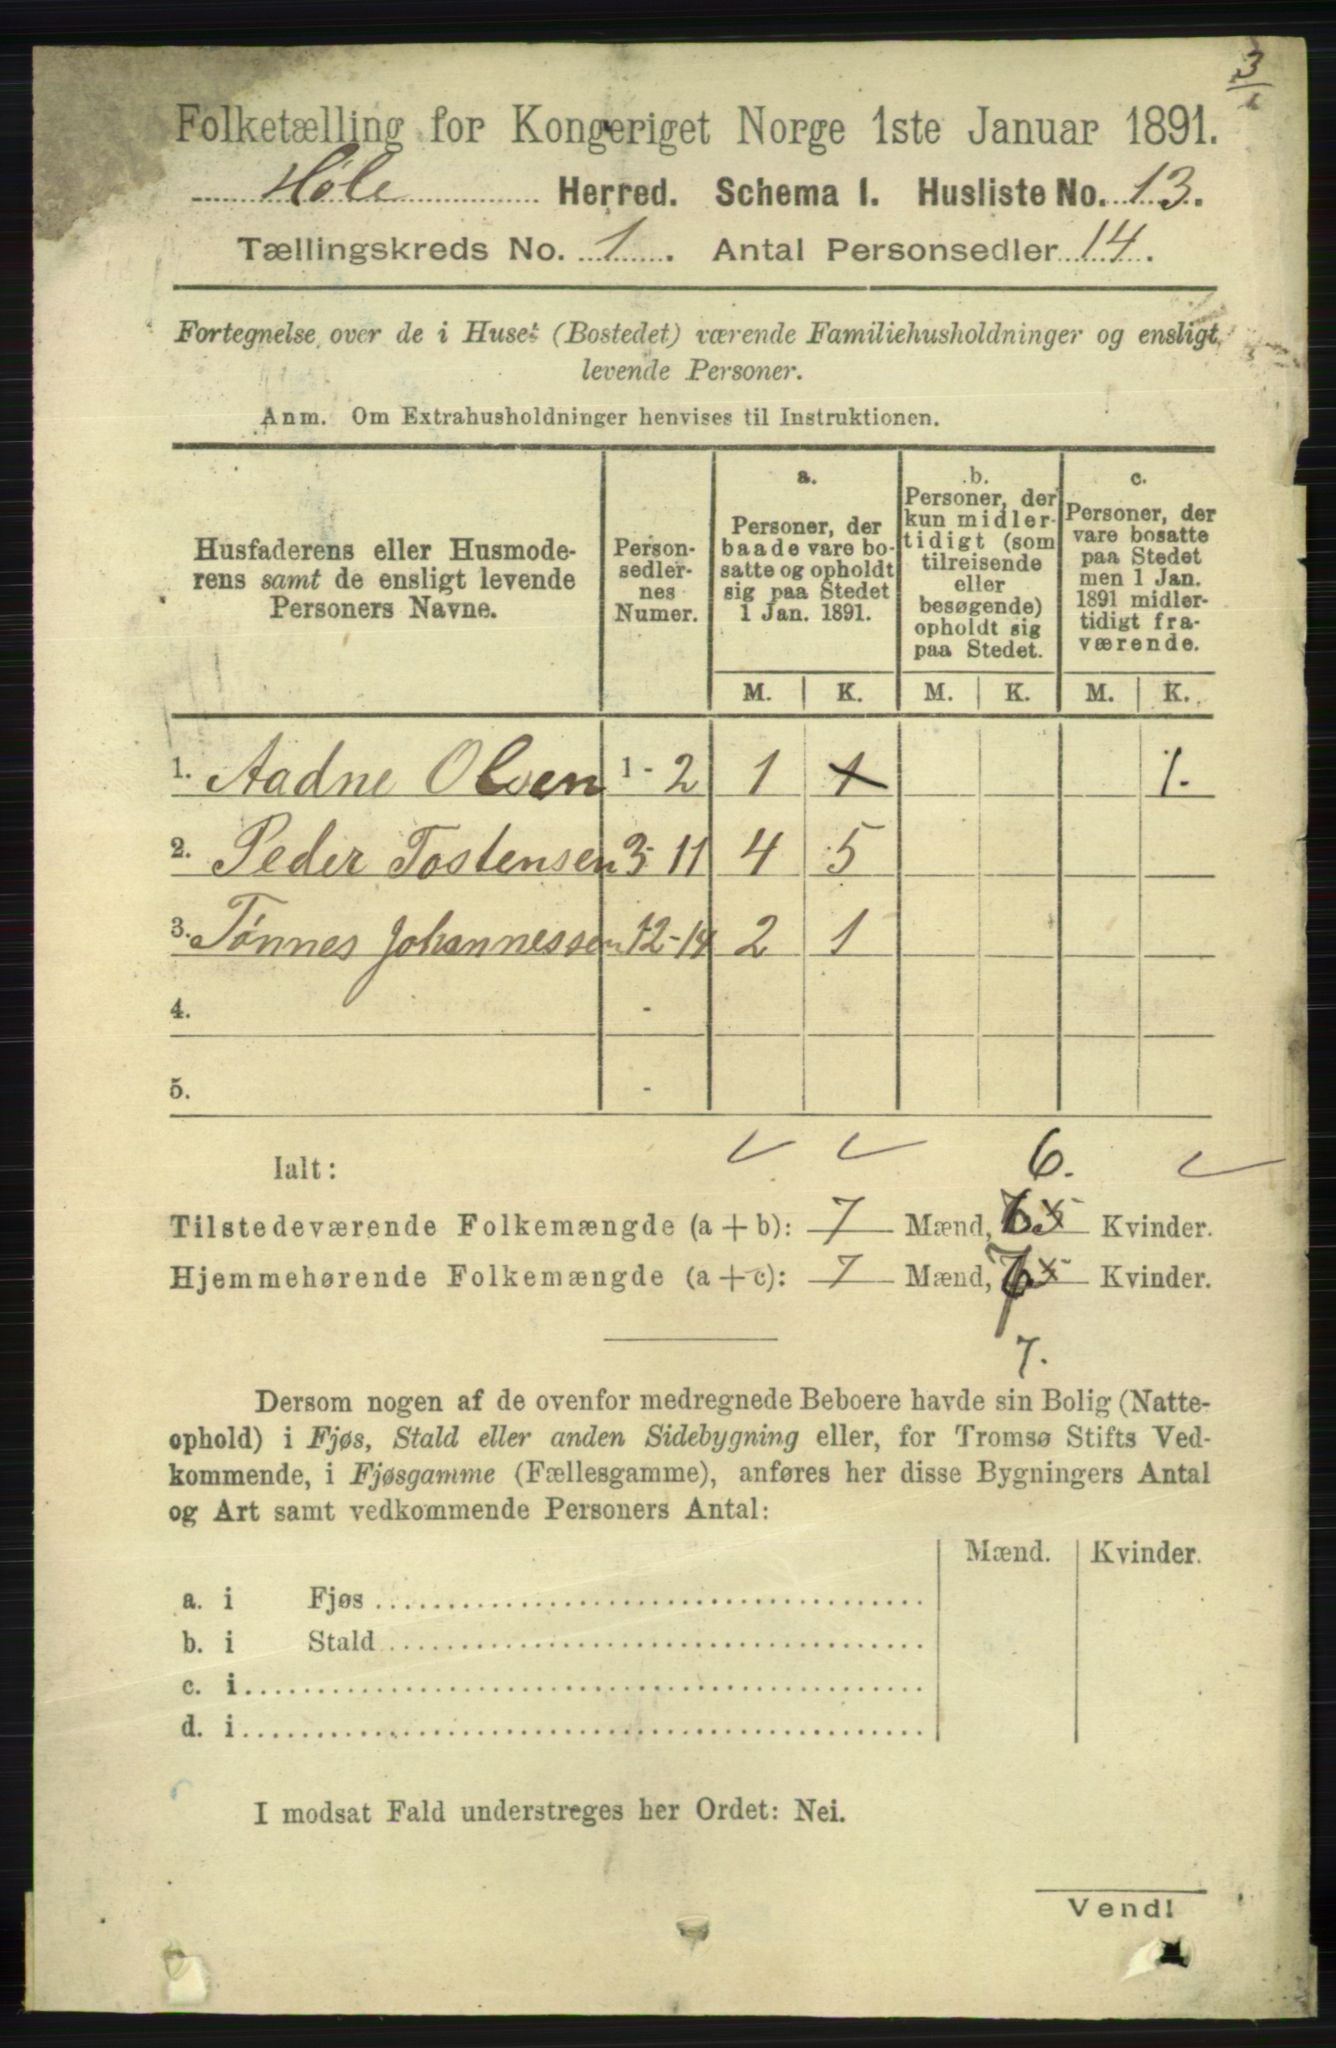 3/1
Folketælling for Kongeriget Norge 1ste Januar 1891.
Høle Herred. Schema 1. Husliste No. 13.
Tællingskreds No. 1. Antal Personsedler 14.
Fortegnelse over de i Huset (Bostedet) værende Familiehusholdninger og ensligt
levende Personer.
Anm. Om Extrahusholdninger henvises til Instruktionen.
Husfaderens eller Husmode-
rens samt de ensligt levende
Personers Navne.
Person-
sedler-
nes
Numer.
a.
Personer, der
baade vare bo-
satte og opholdt
sig paa Stedet
1 Jan. 1891.
b.
Personer, der
kun midler-
tidigt (som
tilreisende
eller
besøgende)
opholdt sig
paa Stedet.
c.
Personer, der
vare bosatte
paa Stedet
men 1 Jan.
1891 midler-
tidigt fra-
værende.
M. K. M. K. M. K.
1. Aadne Olsen 1 - 2 1 1 1.
2. Peder Tostensen 3-11 4 5
3. Tønnes Johannessen 12-14 2 1
4. -
5. -
Ialt: 6.
Tilstedeværende Folkemængde (a + b): 7 Mænd, Kvinder.
Hjemmehørende Folkemængde (a + c): 7 Mænd, Kvinder.
7.
Dersom nogen af de ovenfor medregnede Beboere havde sin Bolig (Natte-
ophold) i Fjøs, Stald eller anden Sidebygning eller, for Tromsø Stifts Ved-
kommende, i Fjøsgamme (Fællesgamme), anføres her disse Bygningers Antal
og Art samt vedkommende Personers Antal:
Mænd. Kvinder.
a. i Fjøs
b. i Stald
c. i
d. i
I modsat Fald understreges her Ordet: Nei.
Vend!